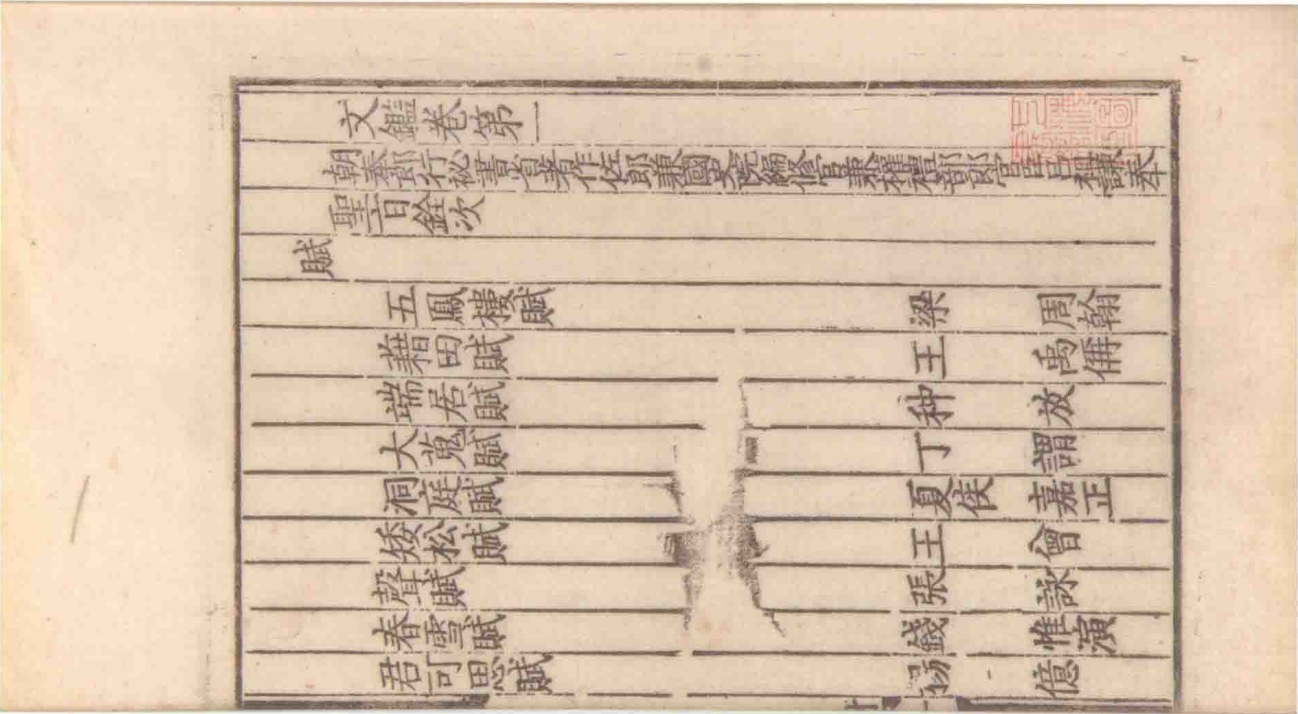 文鑑卷第一
朝奉郎行祕書省著作佐郎兼國史院編修官兼權禮部郎官臣呂祖謙奉
聖旨銓次
賦
五鳳樓賦 梁周翰
藉田賦 王禹偁
端居賦 种放
大蒐賦 丁謂
洞庭賦 夏侯嘉正
矮松賦 王曾
聲賦 張詠
春雪賦 錢惟演
君可思賦 楊億